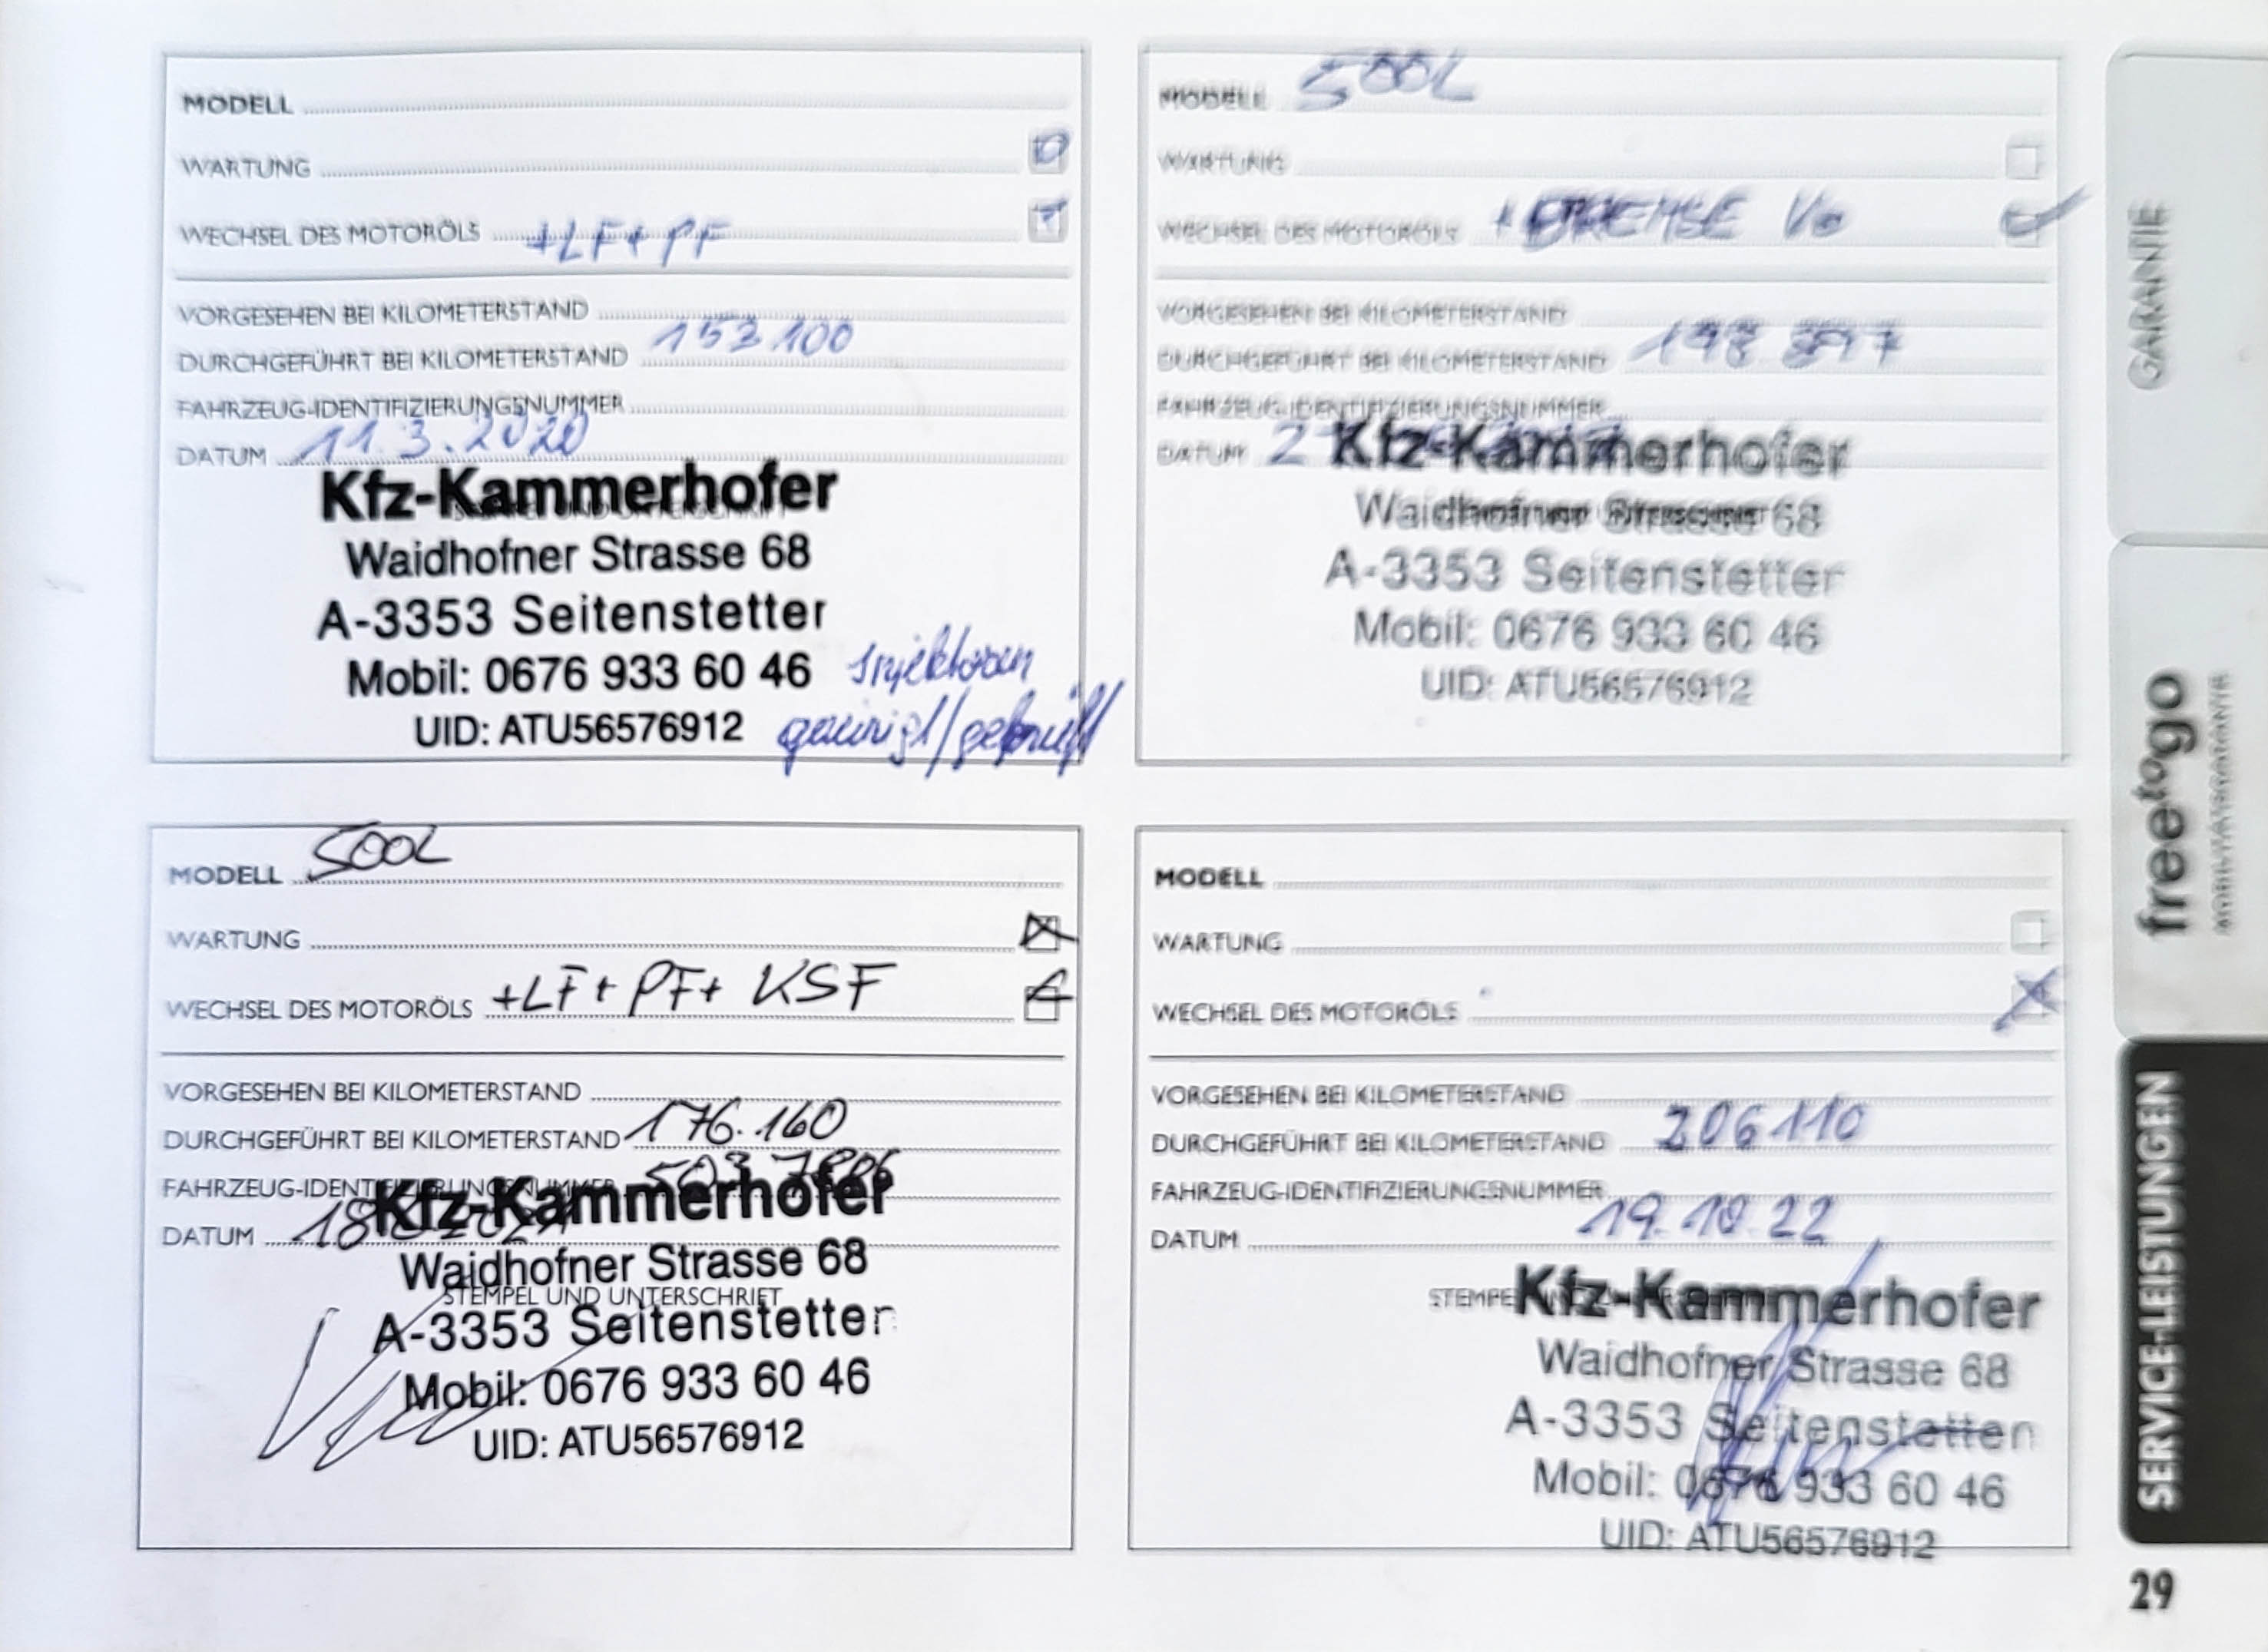 MODELL
WARTUNG
WECHSEL DES MOTORÖLS +LF+PF
VORGESEHEN BEI KILOMETERSTAND
DURCHGEFÜHRT BEI KILOMETERSTAND 153 100
FAHRZEUG-IDENTIFIZIERUNGSNUMMER
DATUM 11.3.2020
STEMPEL UND UNTERSCHRIFT
Kfz-Kammerhofer
Waidhofner Strasse 68
A-3353 Seitenstetten
Mobil: 0676 933 60 46
UID: ATU56576912
Injektoren
gereinigt/geprüft
MODELL 500L
WARTUNG
WECHSEL DES MOTORÖLS + BREMSE Vo
VORGESEHEN BEI KILOMETERSTAND
DURCHGEFÜHRT BEI KILOMETERSTAND
FAHRZEUG-IDENTIFIZIERUNGSNUMMER
DATUM
Kfz-Kammerhofer
Waidhofner Strasse 68
A-3353 Seitenstetten
Mobil: 0676 933 60 46
UID: ATU56576912
MODELL 500L
WARTUNG
WECHSEL DES MOTORÖLS +LF+PF+ KSF
VORGESEHEN BEI KILOMETERSTAND
DURCHGEFÜHRT BEI KILOMETERSTAND 176.160
FAHRZEUG-IDENTIFIZIERUNGSNUMMER
DATUM
Kfz-Kammerhofer
Waidhofner Strasse 68
STEMPEL UND UNTERSCHRIFT
A-3353 Seitenstetten
Mobil: 0676 933 60 46
UID: ATU56576912
MODELL
WARTUNG
WECHSEL DES MOTORÖLS
VORGESEHEN BEI KILOMETERSTAND
DURCHGEFÜHRT BEI KILOMETERSTAND 206110
FAHRZEUG-IDENTIFIZIERUNGSNUMMER
DATUM 19.10.22
STEMPEL
Kfz-Kammerhofer
Waidhofner Strasse 68
A-3353 Seitenstetten
Mobil: 0676 933 60 46
UID: ATU56576912
GARANTIE
freetogo
MOBILITÄTSGARANTIE
SERVICE-LEISTUNGEN
29